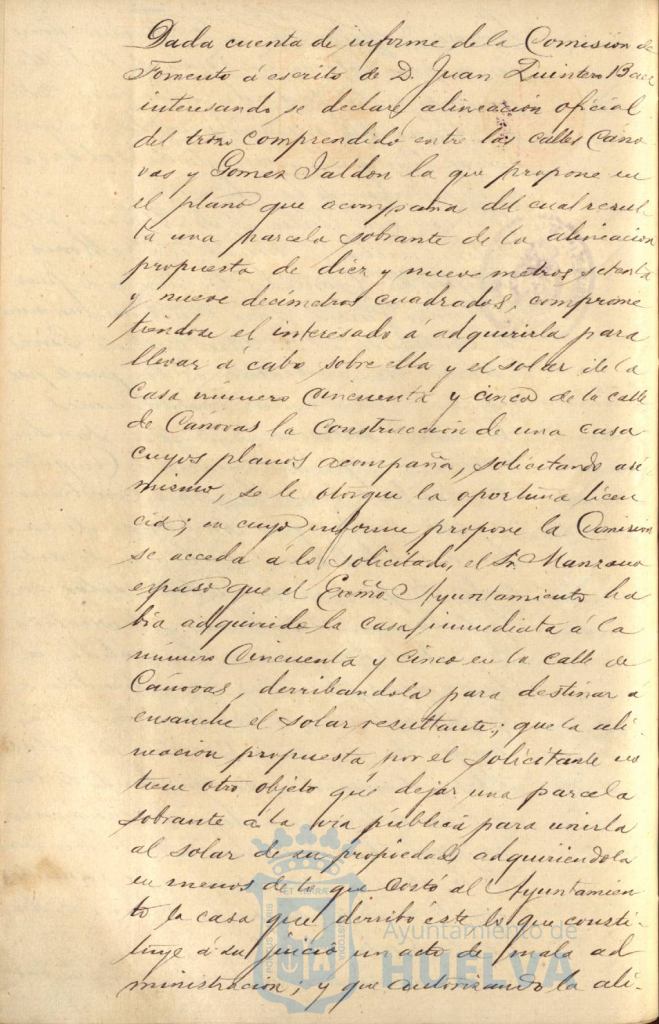 Dada cuenta de informe de la Comisión de
Fomento á escrito de D. Juan Quintero Baez
interesando se declare alineación oficial
del trozo comprendido entre las calles Cano-
vas y Gomez Jaldon la que propone en
el plano que acompaña del cual resul-
ta una parcela sobrante de la alineacion
propuesta de diez y nueve metros setenta
y nueve decímetros cuadrados, comprome
tiendose el interesado á adquirirla para
llevar á cabo sobre ella y el solar de la
casa número cincuenta y cinco de la calle
de Cánovas la construcción de una casa
cuyos planos acompaña, solicitando asi-
mismo, se le otorgue la oportuna licen
cia; en cuyo informe propone la Comision
se acceda á lo solicitado, el Sr. Manzano
expuso que el Excmo. Ayuntamiento ha
bia adquirido la casa inmediata á la
número cincuenta y cinco en la calle de
Cánovas, derribandola para destinar á
ensanche el solar resultante; que la ali-
neacion propuesta por el solicitante no
tiene otro objeto que dejar una parcela
sobrante a la via pública para unirla
al solar de su propiedad adquiriendola
en menos de lo que costó al Ayuntamien
to la casa que derribó éste lo que consti-
tuye á su juicio un acto de mala ad
ministracion; y que autorizando la ali-
Ayuntamiento de
HUELVA